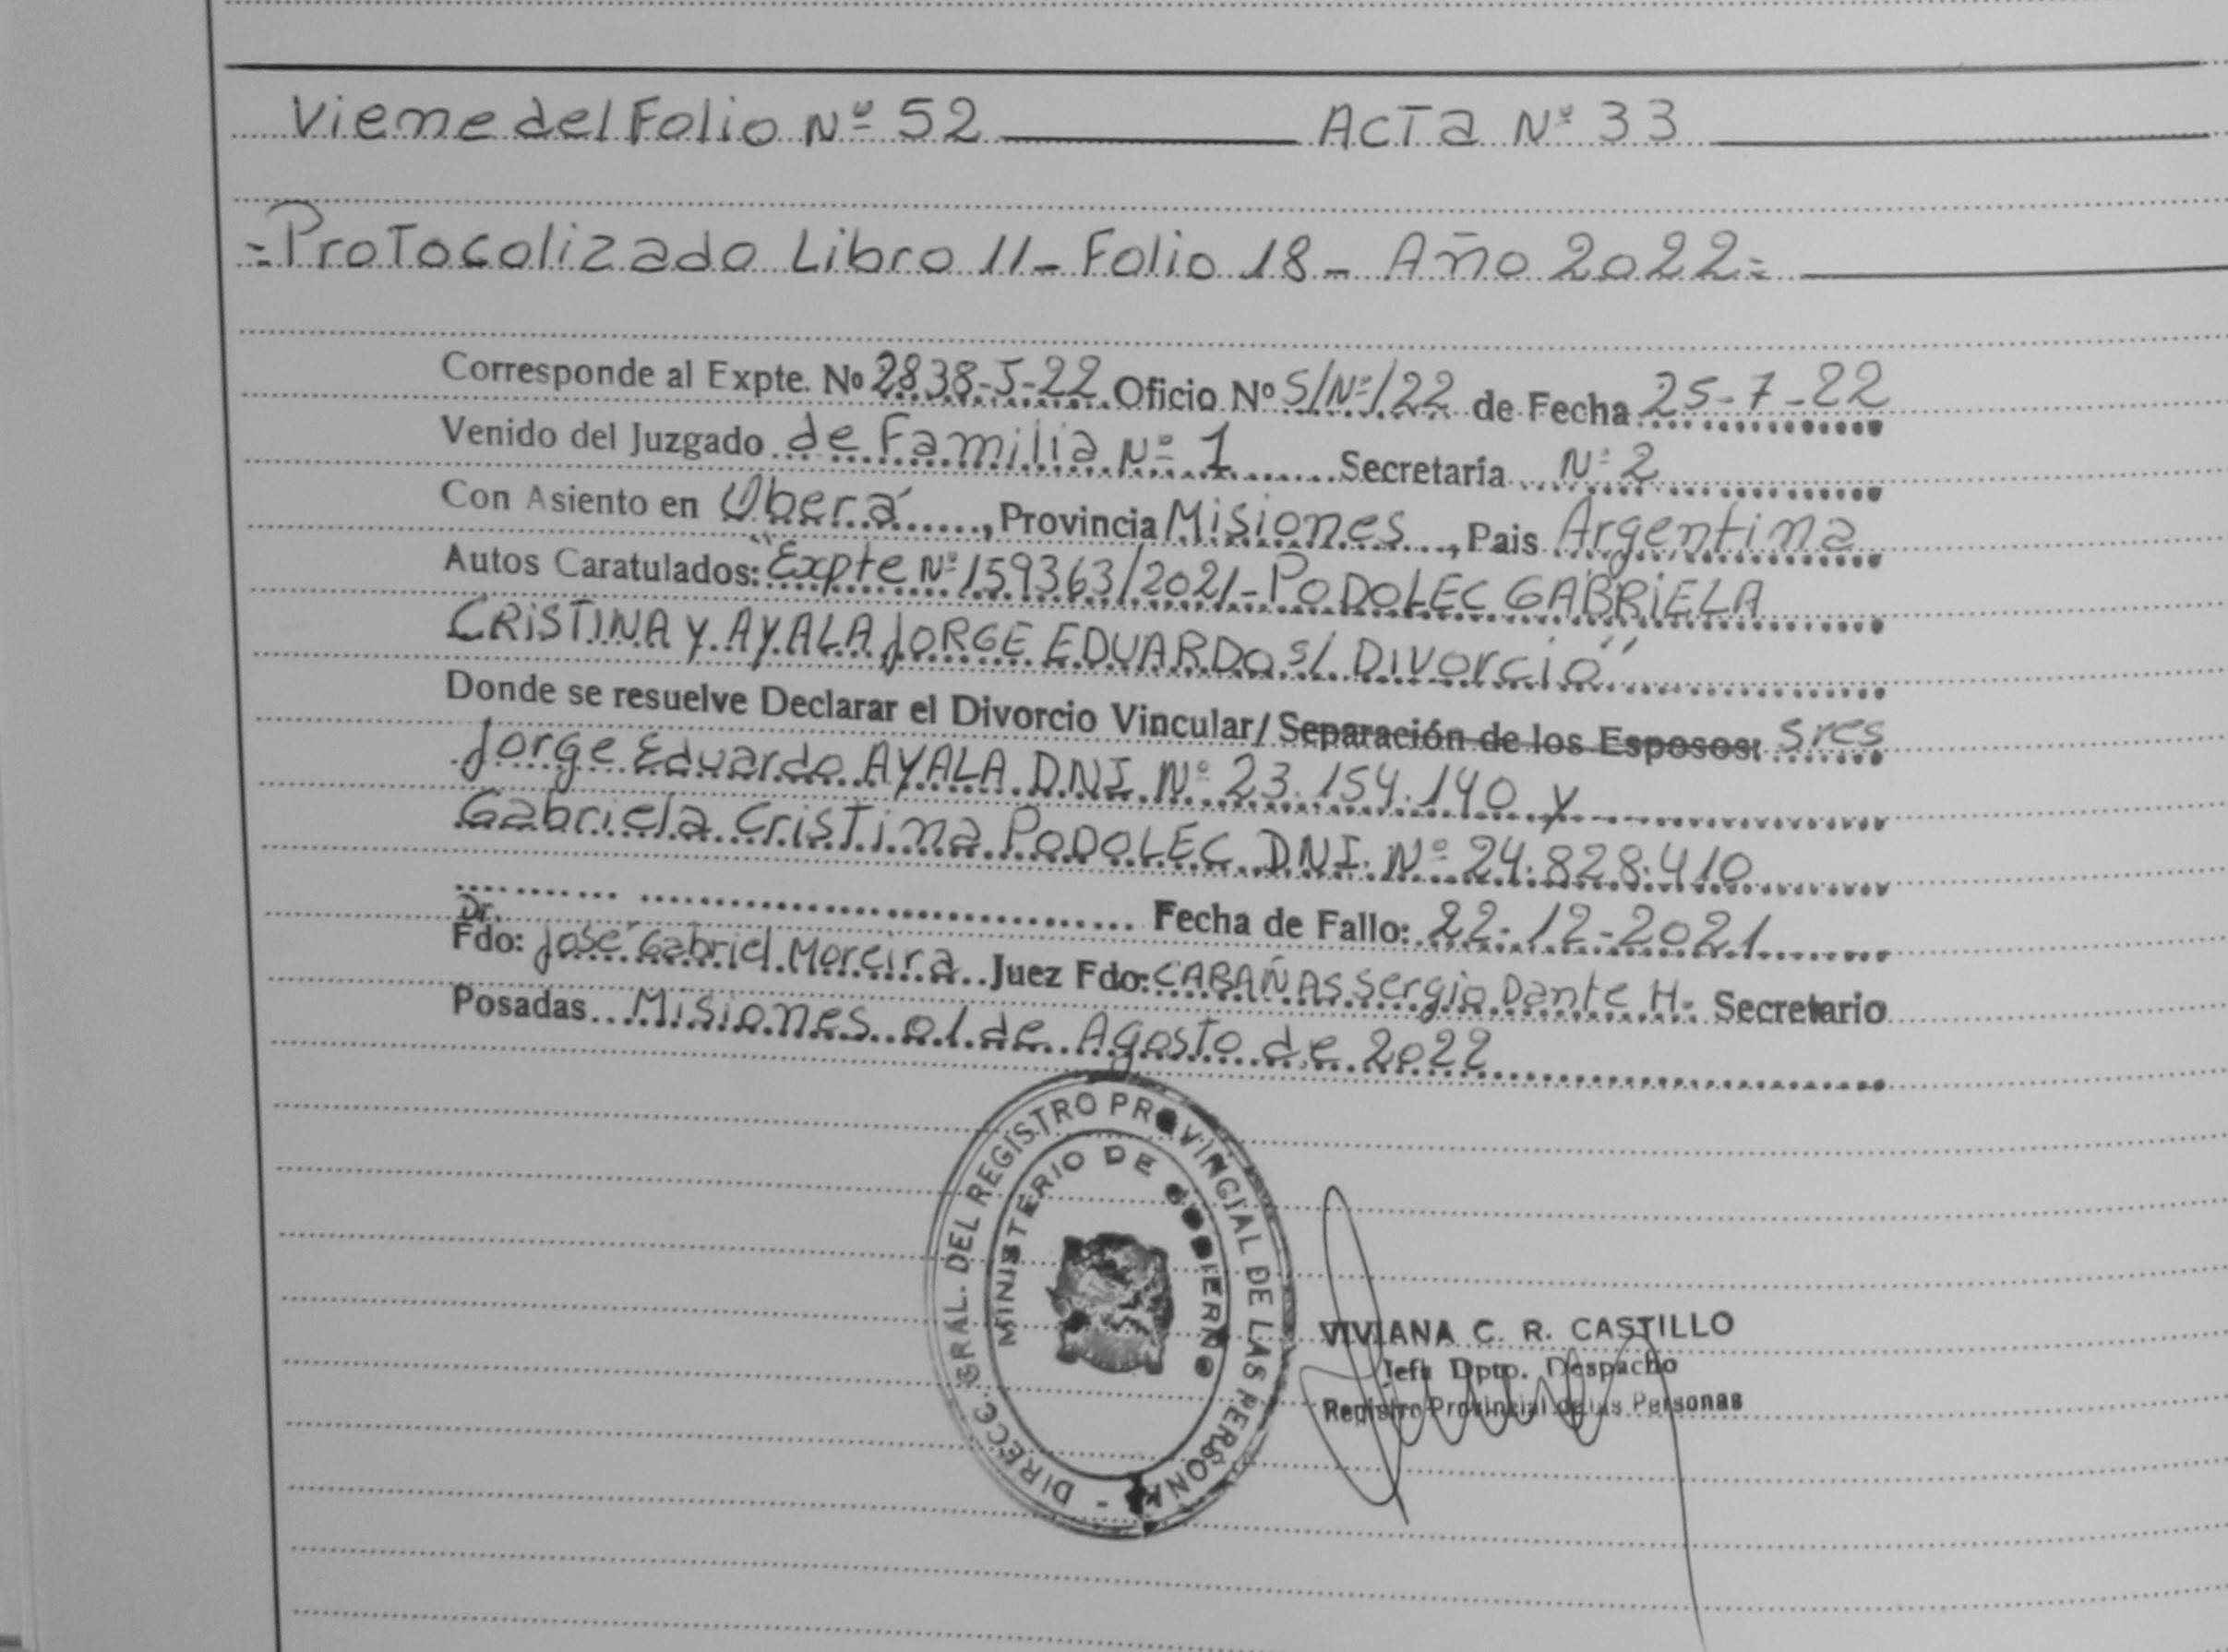 Viene del Folio Nº 52 ACTa Nº 33
=ProTocolizado Libro 11_ Folio 18_ Año 2022=
Corresponde al Expte. Nº 2838-J-22 Oficio Nº S/Nº/22 de Fecha 25-7-22
Venido del Juzgado de Familia Nº 1 Secretaría Nº 2
Con Asiento en Oberá, Provincia Misiones, Pais Argentina
Autos Caratulados: "Expte Nº 159363/2021-PODOLEC GABRIELA
CRISTINA Y AYALA JORGE EDUARDO s/ DIVORCIO"
Donde se resuelve Declarar el Divorcio Vincular/ Separación de los Esposos: Sres
Jorge Eduardo AYALA DNI Nº 23.154.140 y
Gabriela Cristina PODOLEC DNI. Nº 24.828.410
Fecha de Fallo: 22-12-2021
Dr.
Fdo: José Gabriel Moreira Juez Fdo: CABAÑAS Sergio Dante H. Secretario
Posadas Misiones 01 de Agosto de 2022
DIRECC. GRAL. DEL REGISTRO PROVINCIAL DE LAS PERSONAS -
MINISTERIO DE GOBIERNO
VIVIANA C. R. CASTILLO
Jefa Dpto. Despacho
Registro Provincial de las Personas